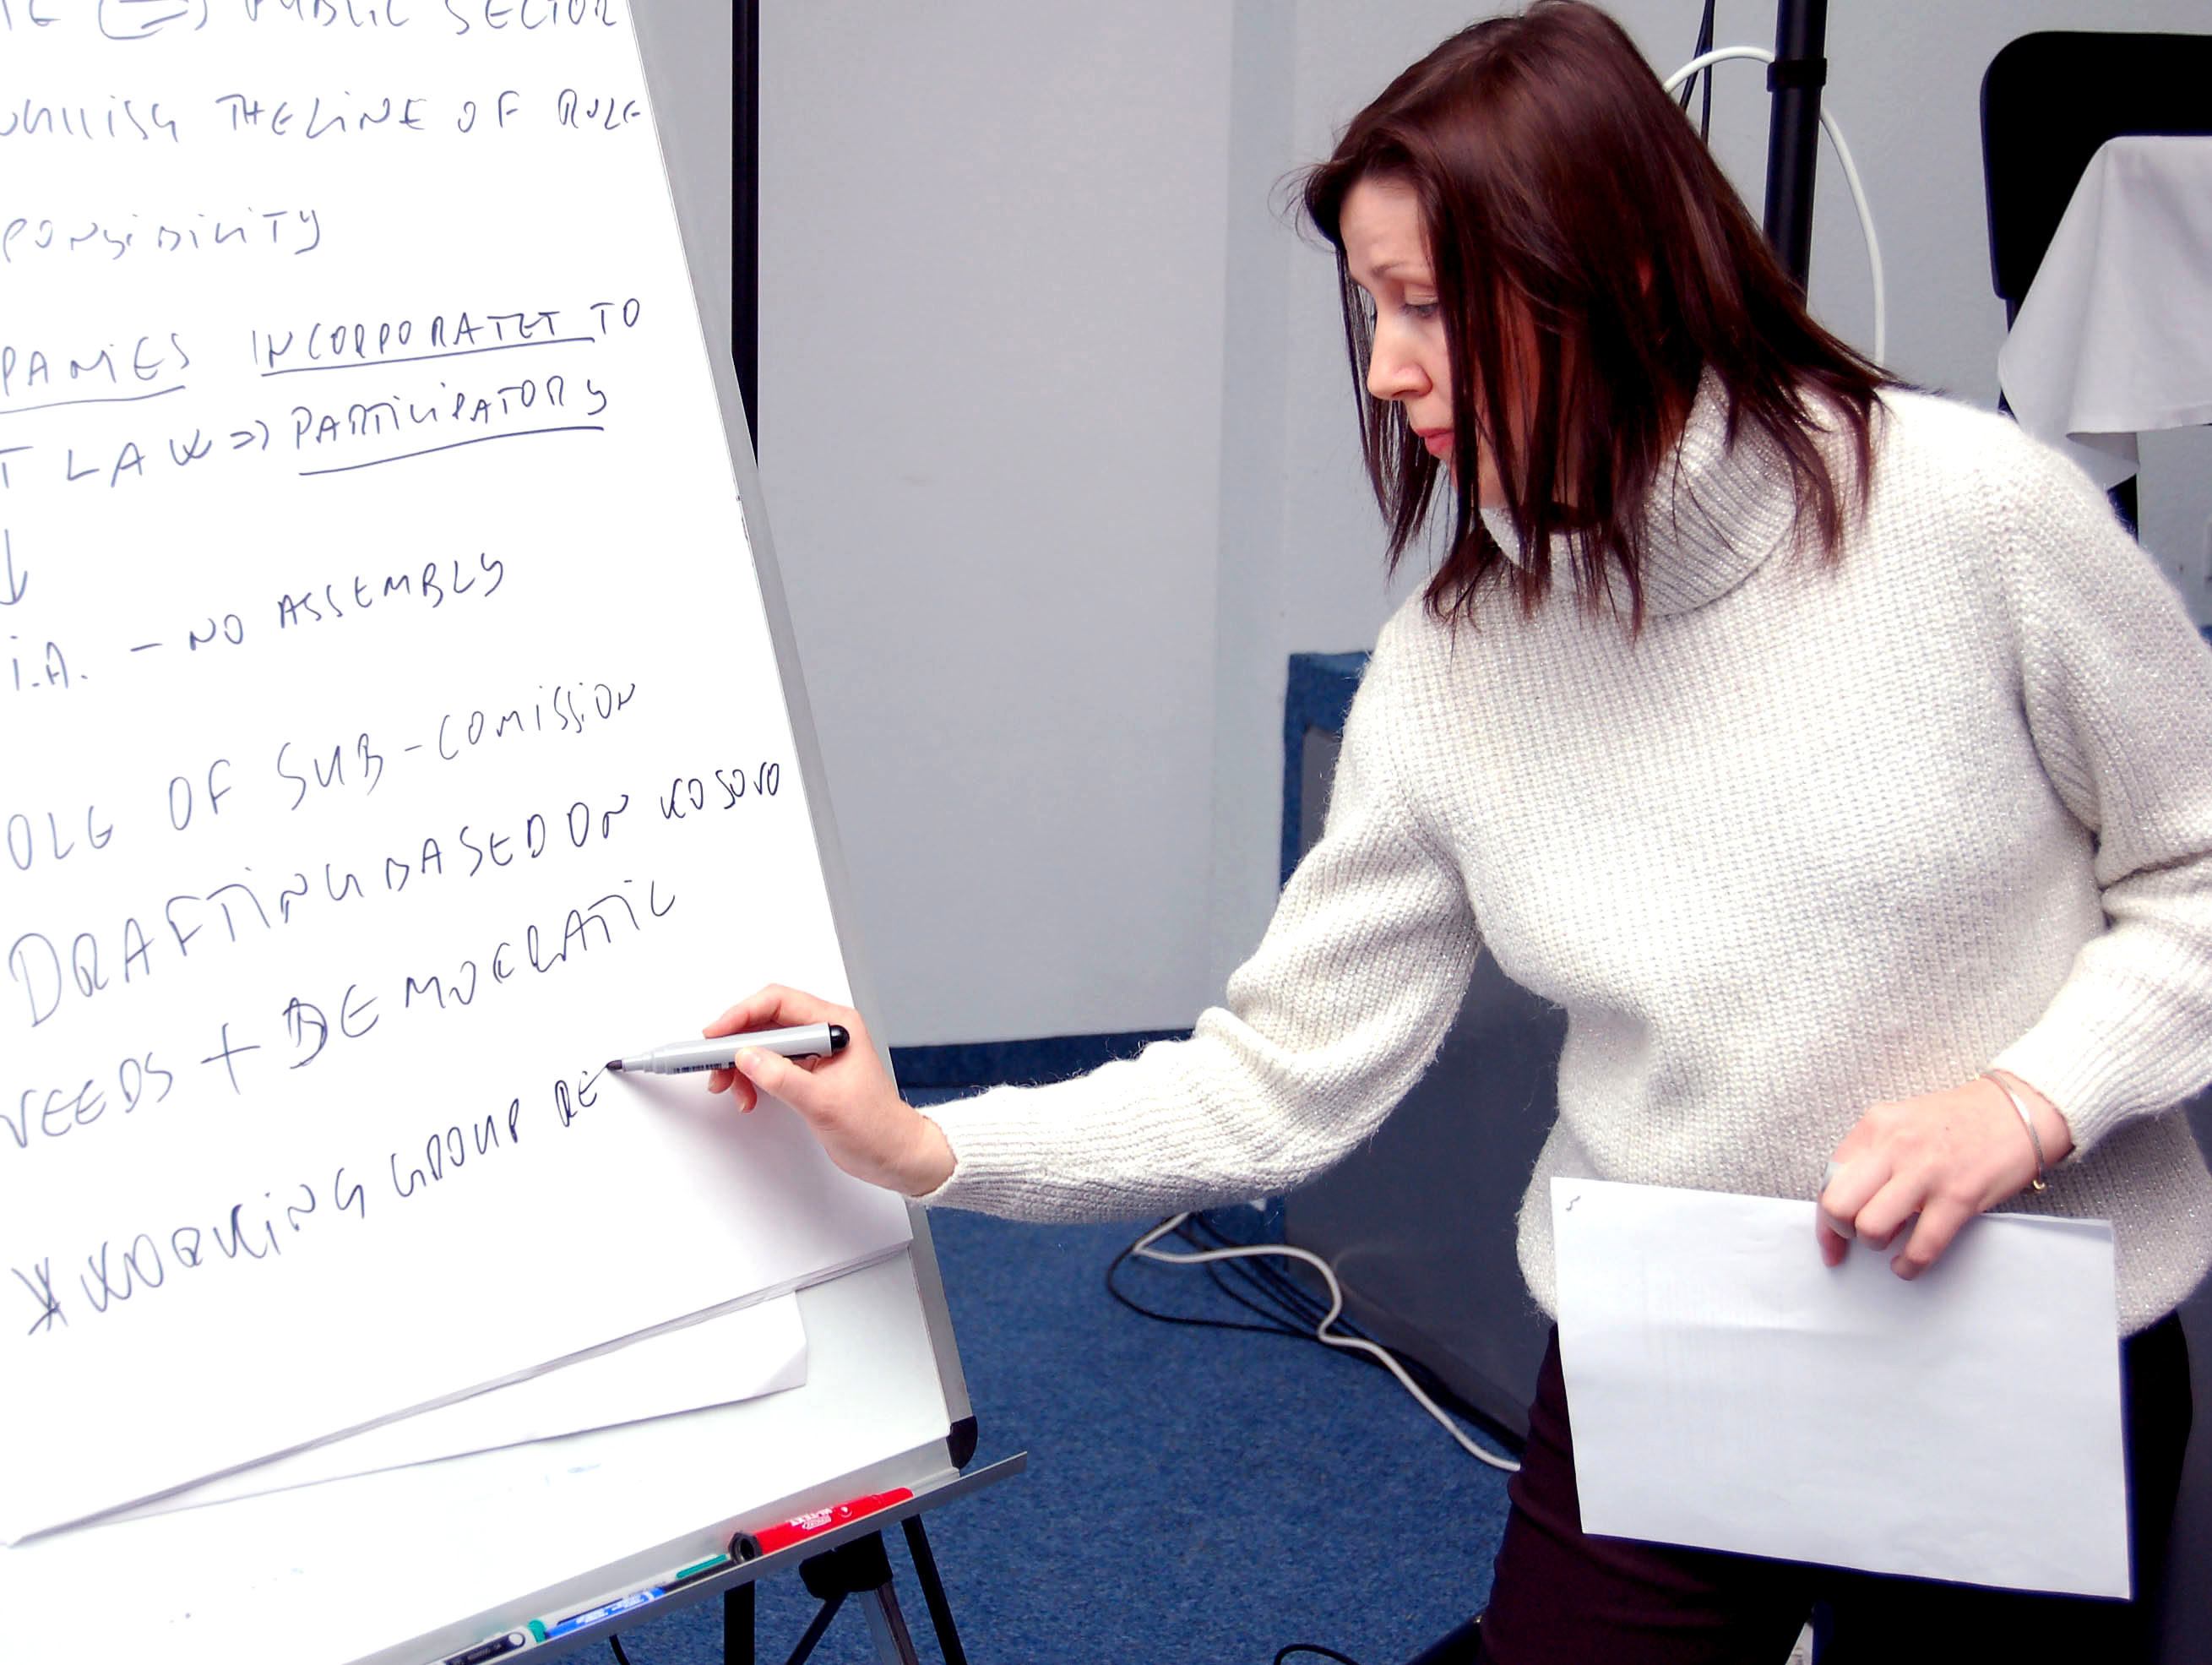 PUBLIC SECTOR
THE LINE OF RULE
PONSIBILITY
PANIES INCORPORATET TO
T LAW => PARTICIPATORY
↓
i.A. - NO ASSEMBLY
OLG OF SUB-COMISSION
DRAFTING BASED ON KOSOVO
NEEDS + DEMOCRATIC
* WORKING GROUP RE